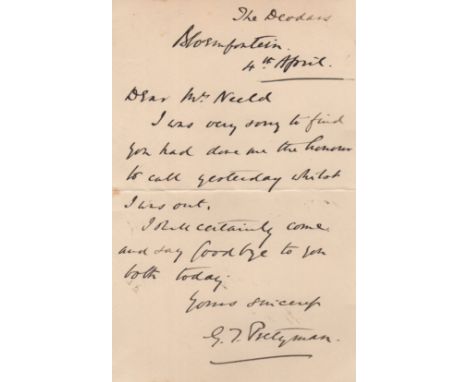 The Deodars
Bloemfontein.
4th April.
Dear Mrs Neeld
I was very sorry to find
you had done me the honour
to call yesterday whilst
I was out.
I shall certainly come
and say Goodbye to you
both today.
Yours sincerely
G. T. Pretyman.